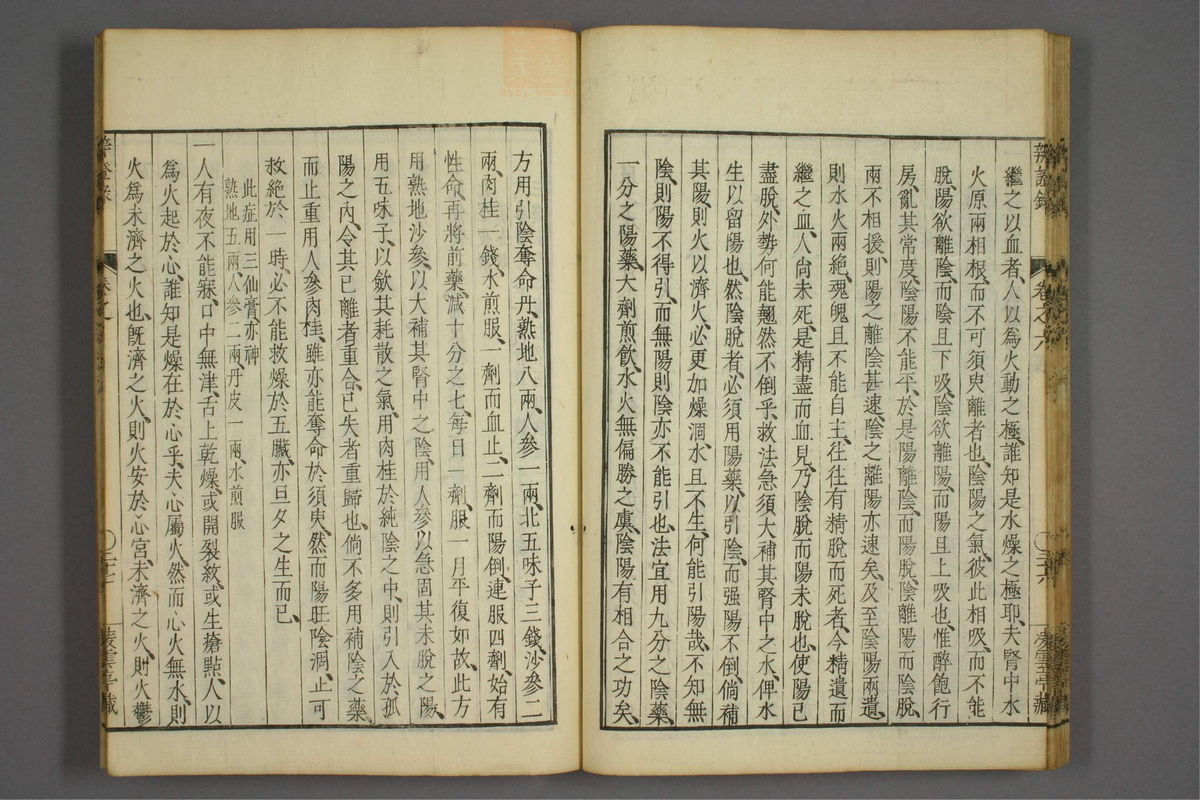 辨證錄 卷之六
繼之以血者、人以爲火動之極、誰知是水燥之極耶、夫腎中水
火原兩相根、而不可須臾離者也、陰陽之氣、彼此相吸、而不能
脫、陽欲離陰、而陰且下吸、陰欲離陽、而陽且上吸也、惟醉飽行
房、亂其常度、陰陽不能平、於是陽離陰、而陽脫、陰離陽而陰脫、
兩不相援、則陽之離陰甚速、陰之離陽亦速矣、及至陰陽兩遺、
則水火兩絕、魂魄且不能自主、往往有精脫而死者、今精遺而
繼之血、人尙未死、是精盡而血見、乃陰脫而陽未脫也、使陽已
盡脫、外勢何能翹然不倒乎、救法急須大補其腎中之水、俾水
生以留陽也、然陰脫者、必須用陽藥、以引陰、而强陽不倒、倘補
其陽、則火以濟火、必更加燥涸、水且不生、何能引陽哉、不知無
陰、則陽不得引、而無陽則陰亦不能引也、法宜用九分之陰藥、
一分之陽藥、大劑煎飮、水火無偏勝之虞、陰陽有相合之功矣、
方用引陰奪命丹、熟地八兩、人參一兩、北五味子三錢、沙參二
兩、肉桂一錢、水煎服、一劑而血止、二劑而陽倒、連服四劑、始有
性命、再將前藥、減十分之七、每日一劑、服一月平復如故、此方
用熟地沙參、以大補其腎中之陰、用人參、以急固其未脫之陽、
用五味子、以斂其耗散之氣、用肉桂於純陰之中、則引入於孤
陽之內、令其已離者重合、已失者重歸也、倘不多用補陰之藥、
而止重用人參肉桂、雖亦能奪命於須臾、然而陽旺陰涸、止可
救絕於一時、必不能救燥於五臟、亦旦夕之生而已、
此症用三仙膏亦神
熟地五兩、人參二兩、丹皮一兩、水煎服
一人有夜不能寐、口中無津、舌上乾燥、或開裂紋、或生瘡點、人以
爲火起於心、誰知是燥在於心乎、夫心屬火、然而心火無水、則
火爲未濟之火也、旣濟之火、則火安於心宮、未濟之火、則火鬱